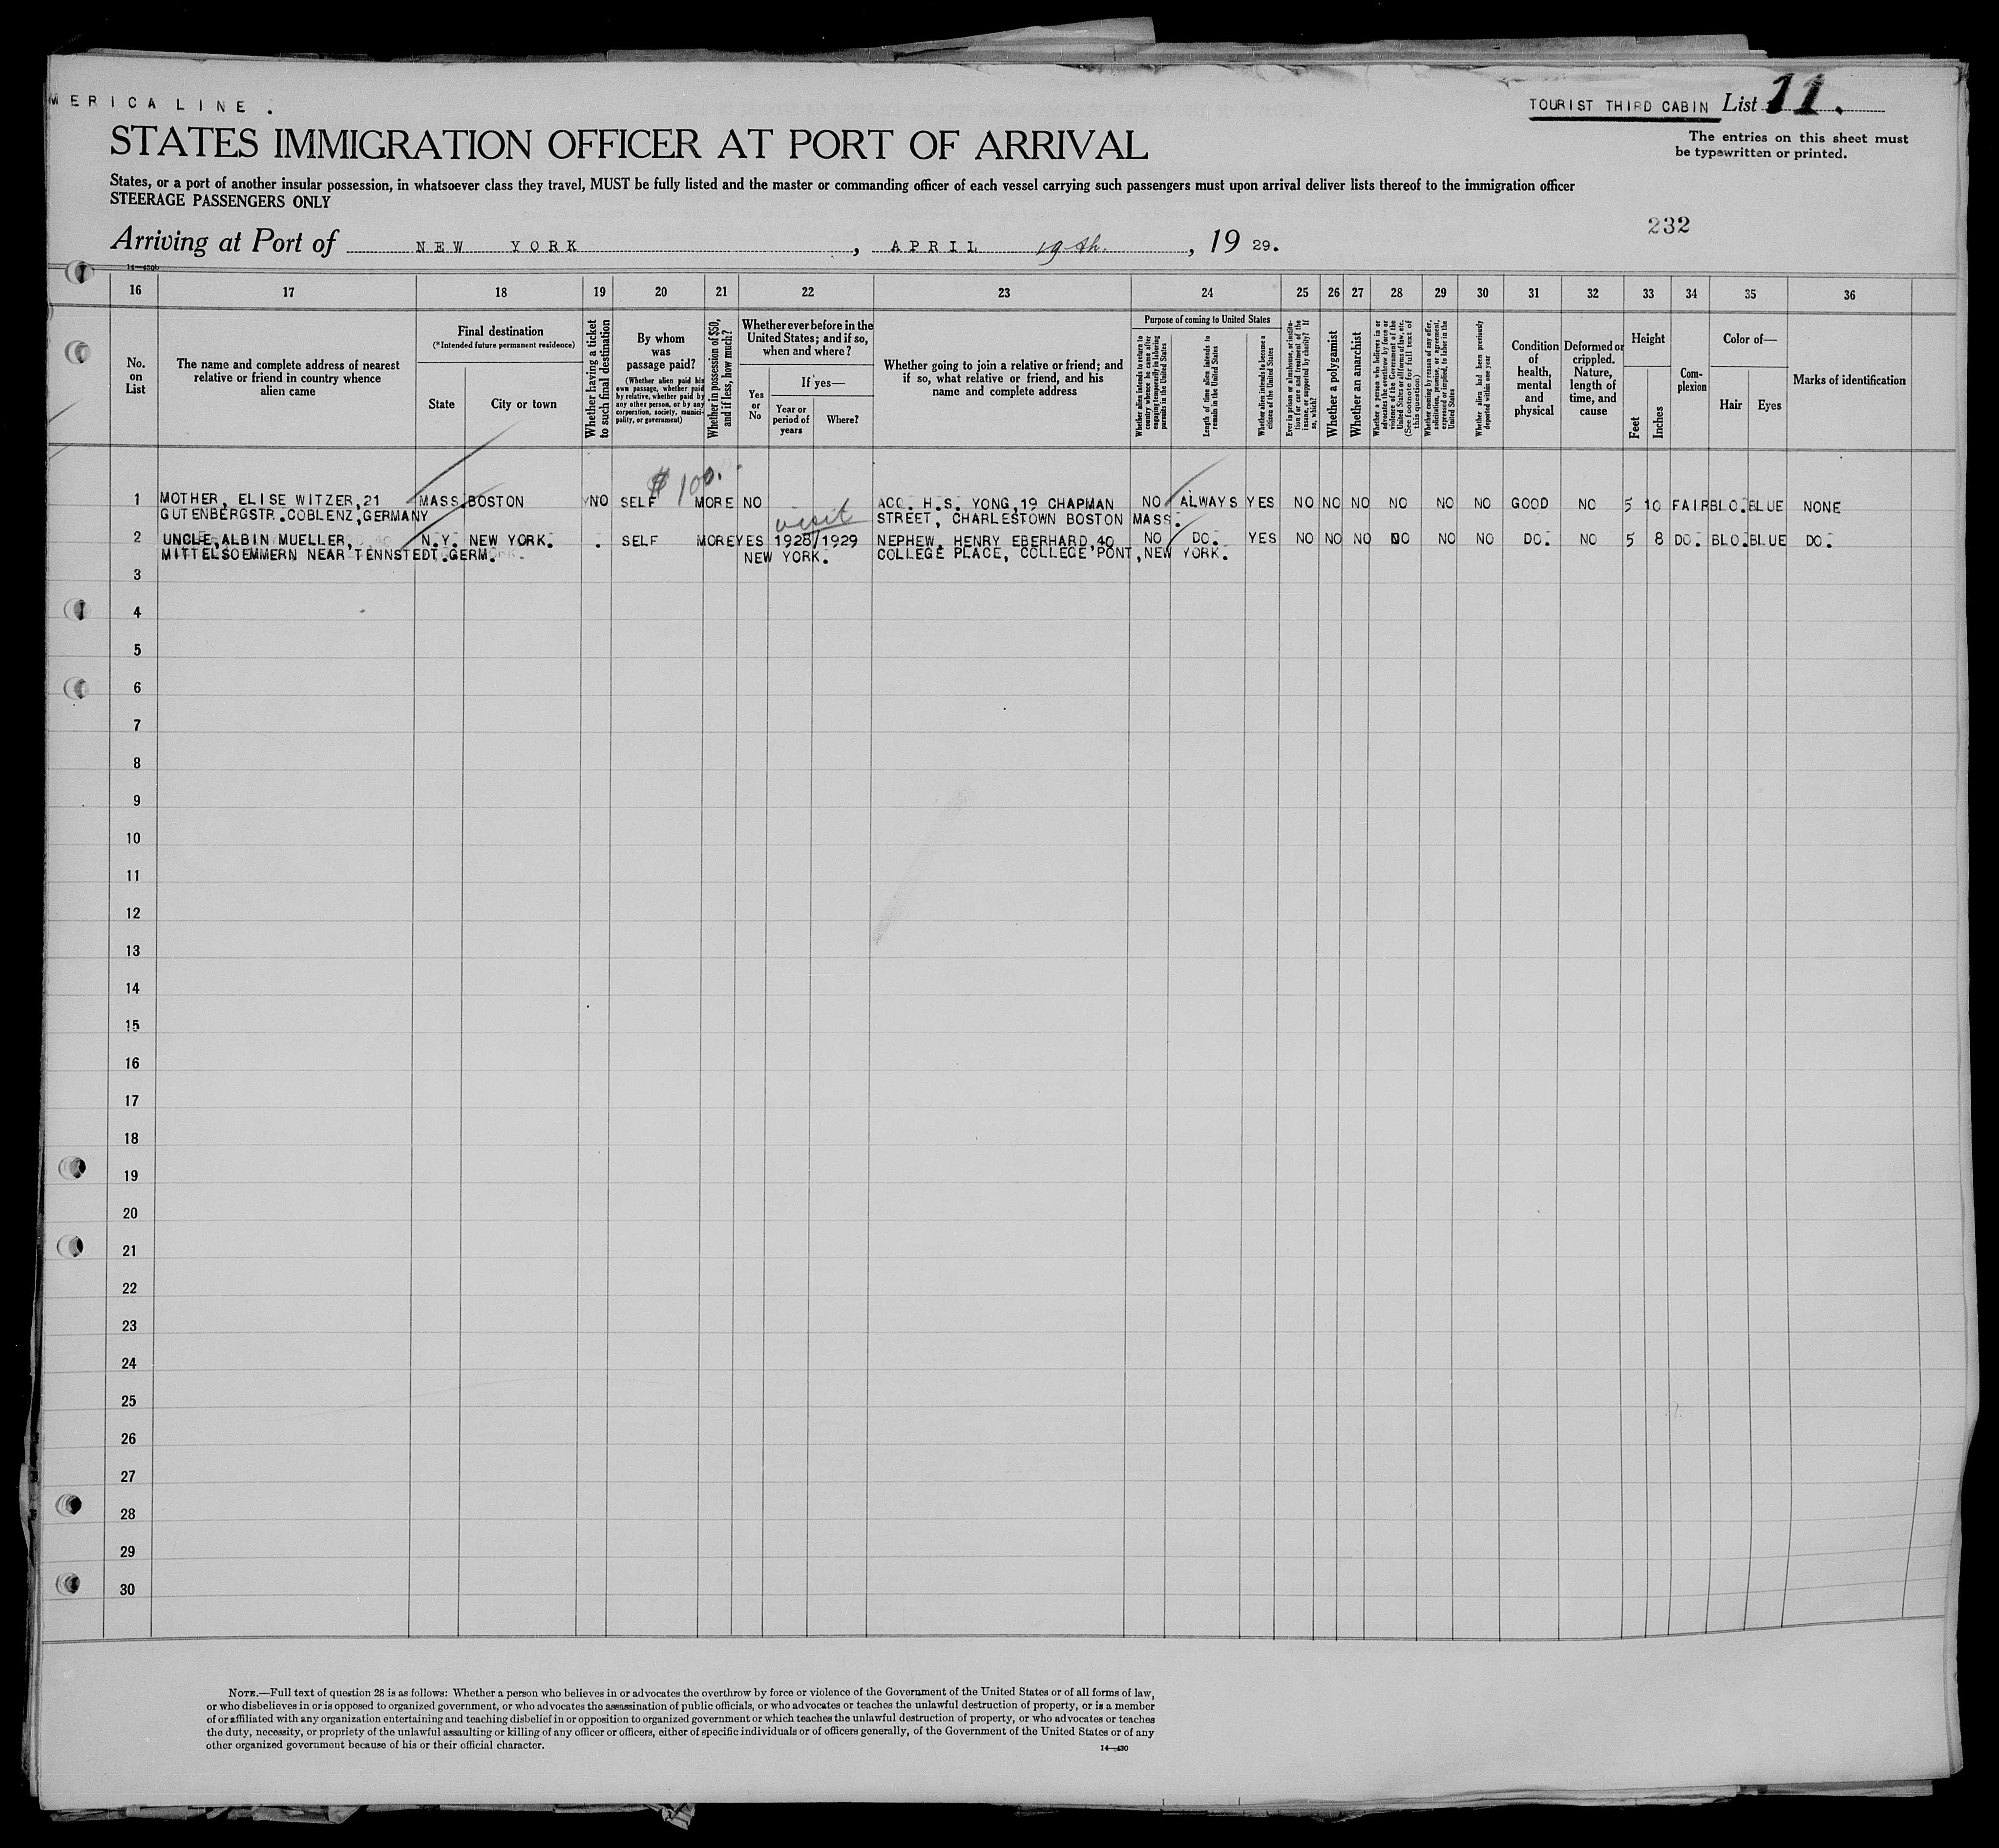 MERICA LINE.
TOURIST THIRD CABIN List 11.
STATES IMMIGRATION OFFICER AT PORT OF ARRIVAL
The entries on this sheet must
be typewritten or printed.
States, or a port of another insular possession, in whatsoever class they travel, MUST be fully listed and the master or commanding officer of each vessel carrying such passengers must upon arrival deliver lists thereof to the immigration officer
STEERAGE PASSENGERS ONLY
232
Arriving at Port of NEW YORK, APRIL 19th., 1929.
16 17 18 19 20 21 22 23 24 25 26 27 28 29 30 31 32 33 34 35 36
No.
on
List
The name and complete address of nearest
relative or friend in country whence
alien came
Final destination
(*Intended future permanent residence)
State
City or town
Whether having a ticket
to such final destination
By whom
was
passage paid?
(Whether alien paid his
own passage, whether paid
by relative, whether paid by
any other person, or by any
corporation, society, munici-
pality, or government)
Whether in possession of $50,
and if less, how much?
Whether ever before in the
United States; and if so,
when and where?
Yes
or
No
If yes—
Year or
period of
years
Where?
Whether going to join a relative or friend; and
if so, what relative or friend, and his
name and complete address
Purpose of coming to United States
Whether alien intends to return to
country whence he came after
engaging temporarily in laboring
pursuits in the United States
Length of time alien intends to
remain in the United States
Whether alien intends to become a
citizen of the United States
Ever in prison or almshouse, or institu-
tion for care and treatment of the
insane, or supported by charity? If
so, which?
Whether a polygamist
Whether an anarchist
Whether a person who believes in or
advocates the overthrow by force or
violence of the Government of the
United States or all forms of law, etc.
(See footnote for full text of
this question)
Whether coming by reason of any offer,
solicitation, promise, or agreement,
expressed or implied, to labor in the
United States
Whether alien had been previously
deported within one year
Condition
of
health,
mental
and
physical
Deformed or
crippled.
Nature,
length of
time, and
cause
Height
Feet
Inches
Com-
plexion
Color of—
Hair
Eyes
Marks of identification
$100.
1 MOTHER, ELISE WITZER,21 MASS. BOSTON NO SELF MORE NO ACC. H.S. YONG,19 CHAPMAN NO ALWAYS YES NO NO NO NO NO NO GOOD NO 5 10 FAIR BLO. BLUE NONE
GUTENBERGSTR.COBLENZ,GERMANY visit STREET, CHARLESTOWN BOSTON MASS.
2 UNCLE,ALBIN MUELLER, N.Y. NEW YORK. . SELF MORE YES 1928/1929 NEPHEW, HENRY EBERHARD,40 NO DO. YES NO NO NO NO NO NO DO. NO 5 8 DO. BLO. BLUE DO.
MITTELSOEMMERN NEAR TENNSTEDT.GERM. NEW YORK. COLLEGE PLACE, COLLEGE PONT,NEW YORK.
3
4
5
6
7
8
9
10
11
12
13
14
15
16
17
18
19
20
21
22
23
24
25
26
27
28
29
30
NOTE.—Full text of question 28 is as follows: Whether a person who believes in or advocates the overthrow by force or violence of the Government of the United States or of all forms of law,
or who disbelieves in or is opposed to organized government, or who advocates the assassination of public officials, or who advocates or teaches the unlawful destruction of property, or is a member
of or affiliated with any organization entertaining and teaching disbelief in or opposition to organized government or which teaches the unlawful destruction of property, or who advocates or teaches
the duty, necessity, or propriety of the unlawful assaulting or killing of any officer or officers, either of specific individuals or of officers generally, of the Government of the United States or of any
other organized government because of his or their official character.
14—430